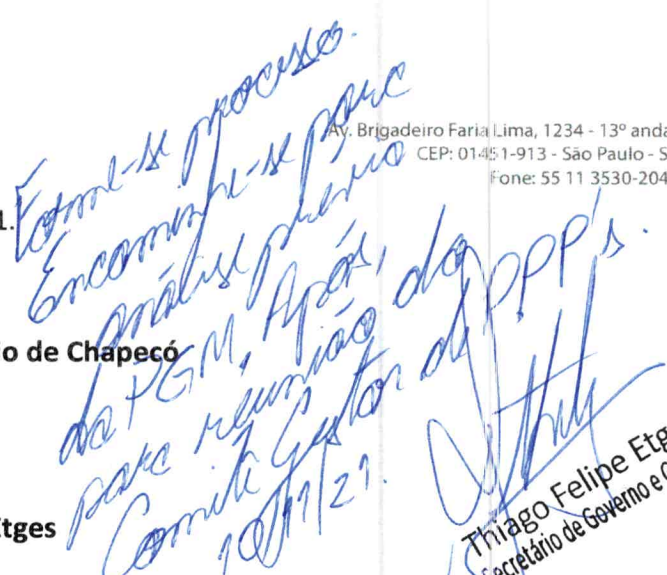 Av. Brigadeiro Faria Lima, 1234 - 13º anda
CEP: 01451-913 - São Paulo - S
Fone: 55 11 3530-204
1.
Forme-se processo.
Encaminhe-se para
análise prévia
da PGM, Após,
para reunião do
Comitê Gestor de PPP's.
10/11/21.
o de Chapecó
Etges
Thiago Felipe Etg
Secretário de Governo e G